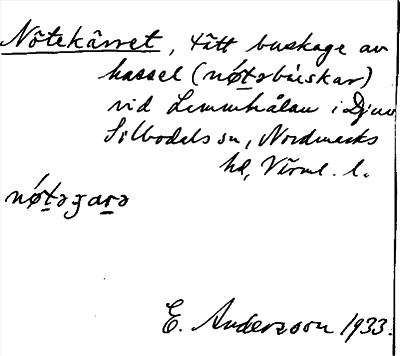 Nötekärret, tätt buskage av
hassel (nǿt̲əbúskar)
vid Lemmhålan i Djuv
Silbodals sn, Nordmarks
hd, Värml. l.
nǿt̲əʒar̲ə
E. Andersson 1933.